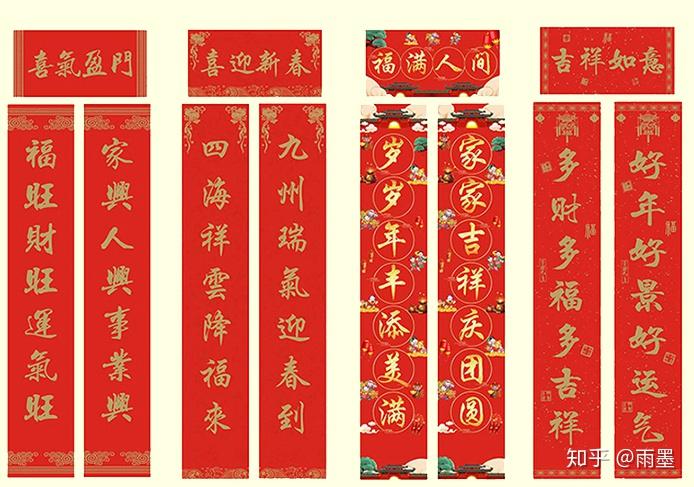 喜氣盈門
家興人興事業興
福旺財旺運氣旺
喜迎新春
九州瑞氣迎春到
四海祥雲降福來
福满人间
家家吉祥庆团圆
岁岁年丰添美满
吉祥如意
好年好景好运气
多财多福多吉祥
知乎 @雨墨